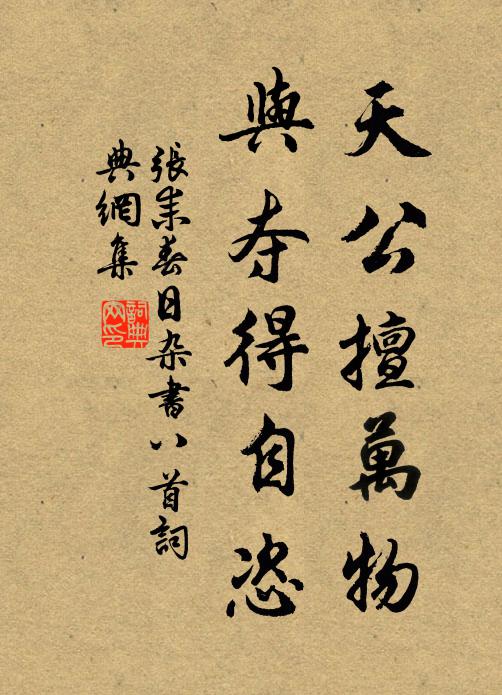 天公擅萬物
與夺得自恣
張耒春日杂書八首詞
典網集
詞典网印